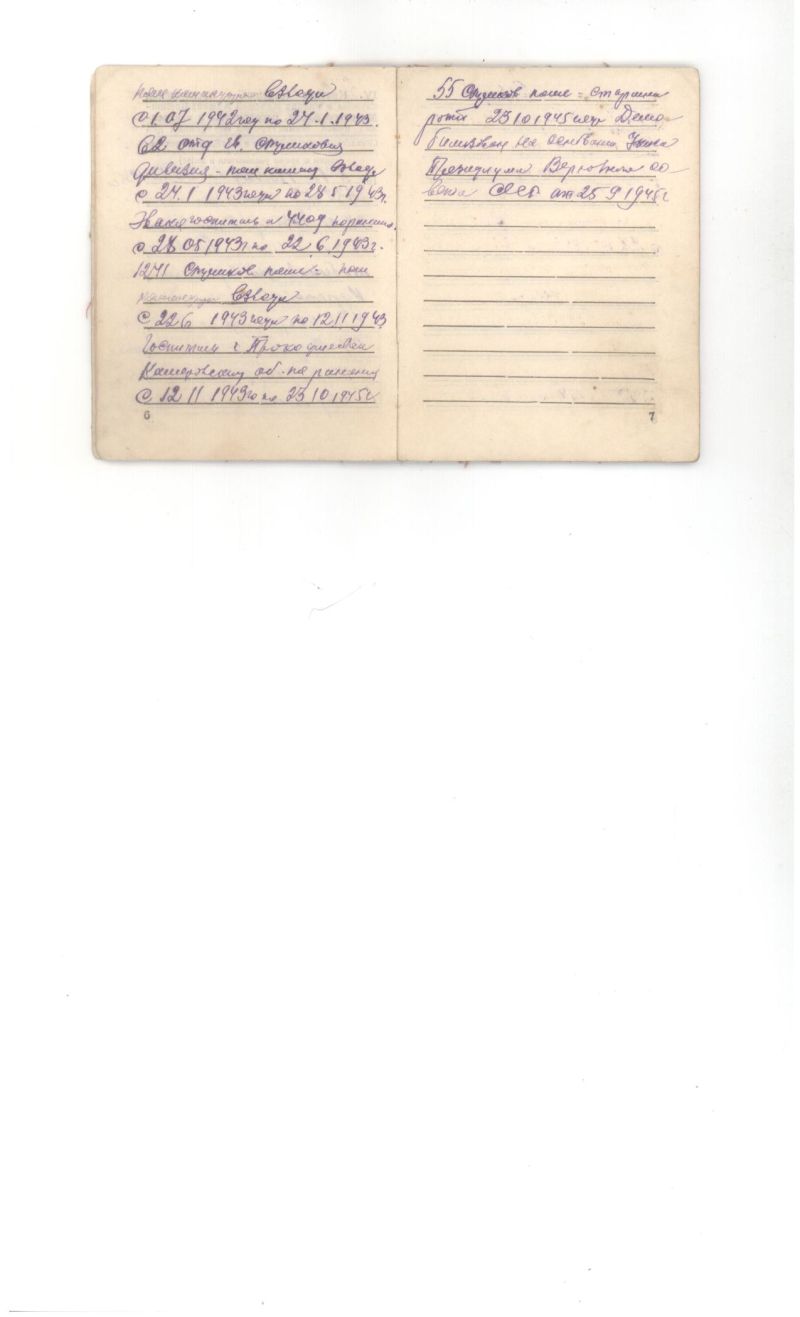 пом командира Взвода
с 1.07 1942 году по 24.1.1943.
62 отд гв. стрелковая
дивизия - пом команд Взвода
с 24.1 1943 года по 28 5 1943г.
Эвакогоспиталь по ранению.
с 28 05 1943г по 22.6.1943г.
1271 Стрелков полк - пом
командира Взвода
с 22 6 1943 года по 12 11 1943
Госпиталь г Прокопьевск
Кемеровской об. по ранению
с 12 11 1943го по 23 10 1945г
6
55 Стрелков полк = старшина
роты 23 10 1945 года Демо
билизован на основании Указа
Президиума Верховного со
вета СССР от 25 9 1945г
7